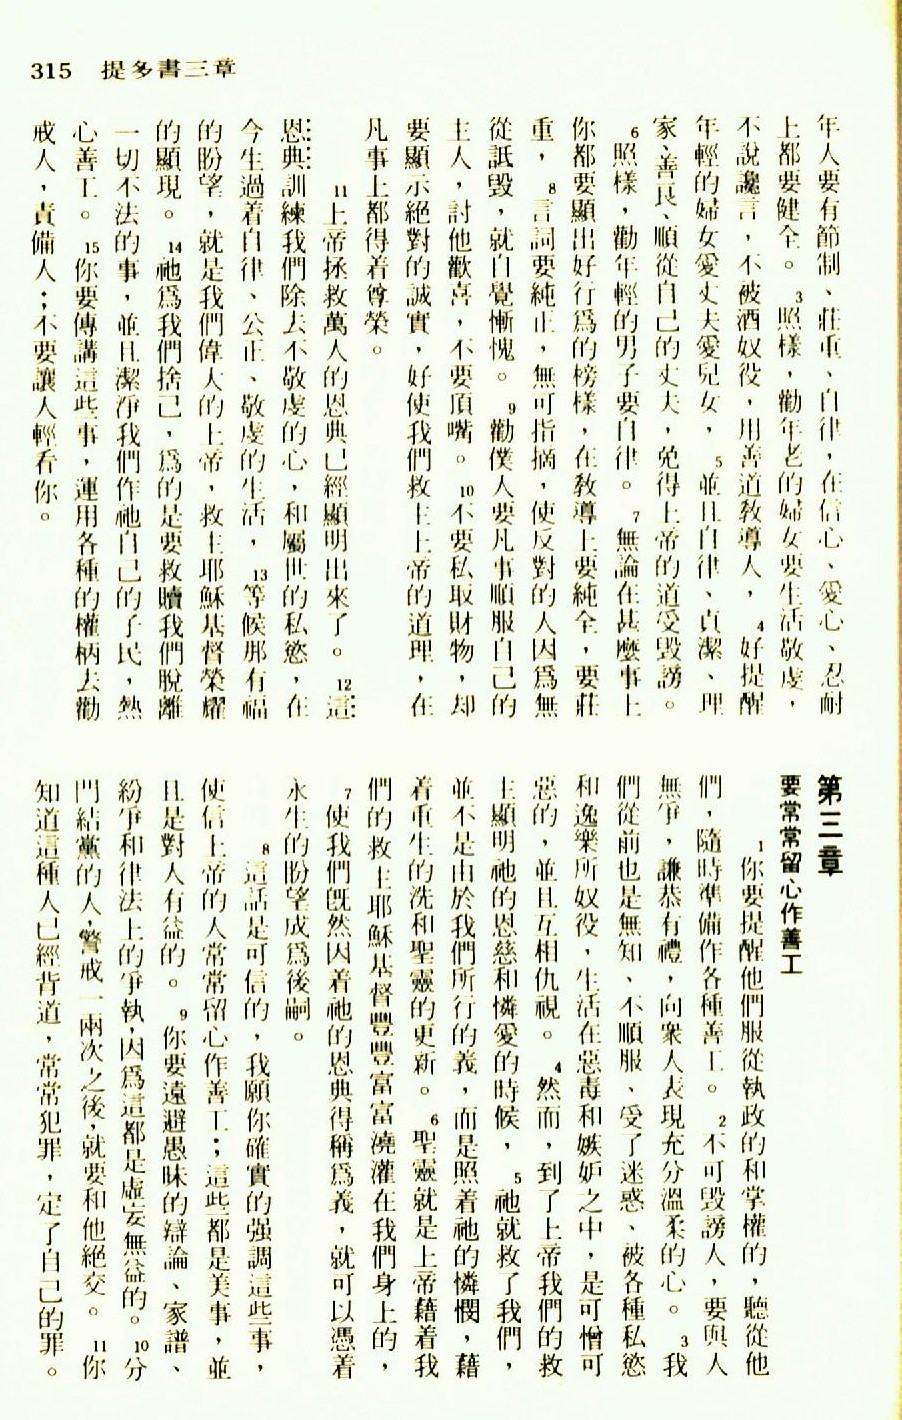 315 提多書三章
年人要有節制、莊重、自律，在信心、愛心、忍耐
上都要健全。3照樣，勸年老的婦女要生活敬虔，
不說讒言，不被酒奴役，用善道教導人，4好提醒
年輕的婦女愛丈夫愛兒女，5並且自律、貞潔、理
家、善良、順從自己的丈夫，免得上帝的道受毀謗。
6照樣，勸年輕的男子要自律。7無論在甚麼事上
你都要顯出好行爲的榜樣，在敎導上要純全，要莊
重，8言詞要純正，無可指摘，使反對的人因爲無
從詆毀，就自覺慚愧。9勸僕人要凡事順服自己的
主人，討他歡喜，不要頂嘴。10不要私取財物，却
要顯示絕對的誠實，好使我們救主上帝的道理，在
凡事上都得着尊榮。
11上帝拯救萬人的恩典已經顯明出來了。12這
恩典訓練我們除去不敬虔的心，和屬世的私慾，在
今生過着自律、公正、敬虔的生活，13等候那有福
的盼望，就是我們偉大的上帝，救主耶穌基督榮耀
的顯現。14祂爲我們捨己，爲的是要救贖我們脫離
一切不法的事，並且潔淨我們作祂自己的子民，熱
心善工。15你要傳講這些事，運用各種的權柄去勸
戒人，責備人；不要讓人輕看你。
第三章
要常常留心作善工
1你要提醒他們服從執政的和掌權的，聽從他
們，隨時準備作各種善工。2不可毀謗人，要與人
無爭，謙恭有禮，向衆人表現充分溫柔的心。3我
們從前也是無知、不順服、受了迷惑、被各種私慾
和逸樂所奴役，生活在惡毒和嫉妒之中，是可憎可
惡的，並且互相仇視。4然而，到了上帝我們的救
主顯明祂的恩慈和憐愛的時候，5祂就救了我們，
並不是由於我們所行的義，而是照着祂的憐憫，藉
着重生的洗和聖靈的更新。6聖靈就是上帝藉着我
們的救主耶穌基督豐豐富富澆灌在我們身上的，
7使我們旣然因着祂的恩典得稱爲義，就可以憑着
永生的盼望成爲後嗣。
8這話是可信的，我願你確實的强調這些事，
使信上帝的人常常留心作善工；這些都是美事，並
且是對人有益的。9你要遠避愚昧的辯論、家譜、
紛爭和律法上的爭執，因爲這都是虛妄無益的。10分
門結黨的人，警戒一兩次之後，就要和他絕交。11你
知道這種人已經背道，常常犯罪，定了自己的罪。